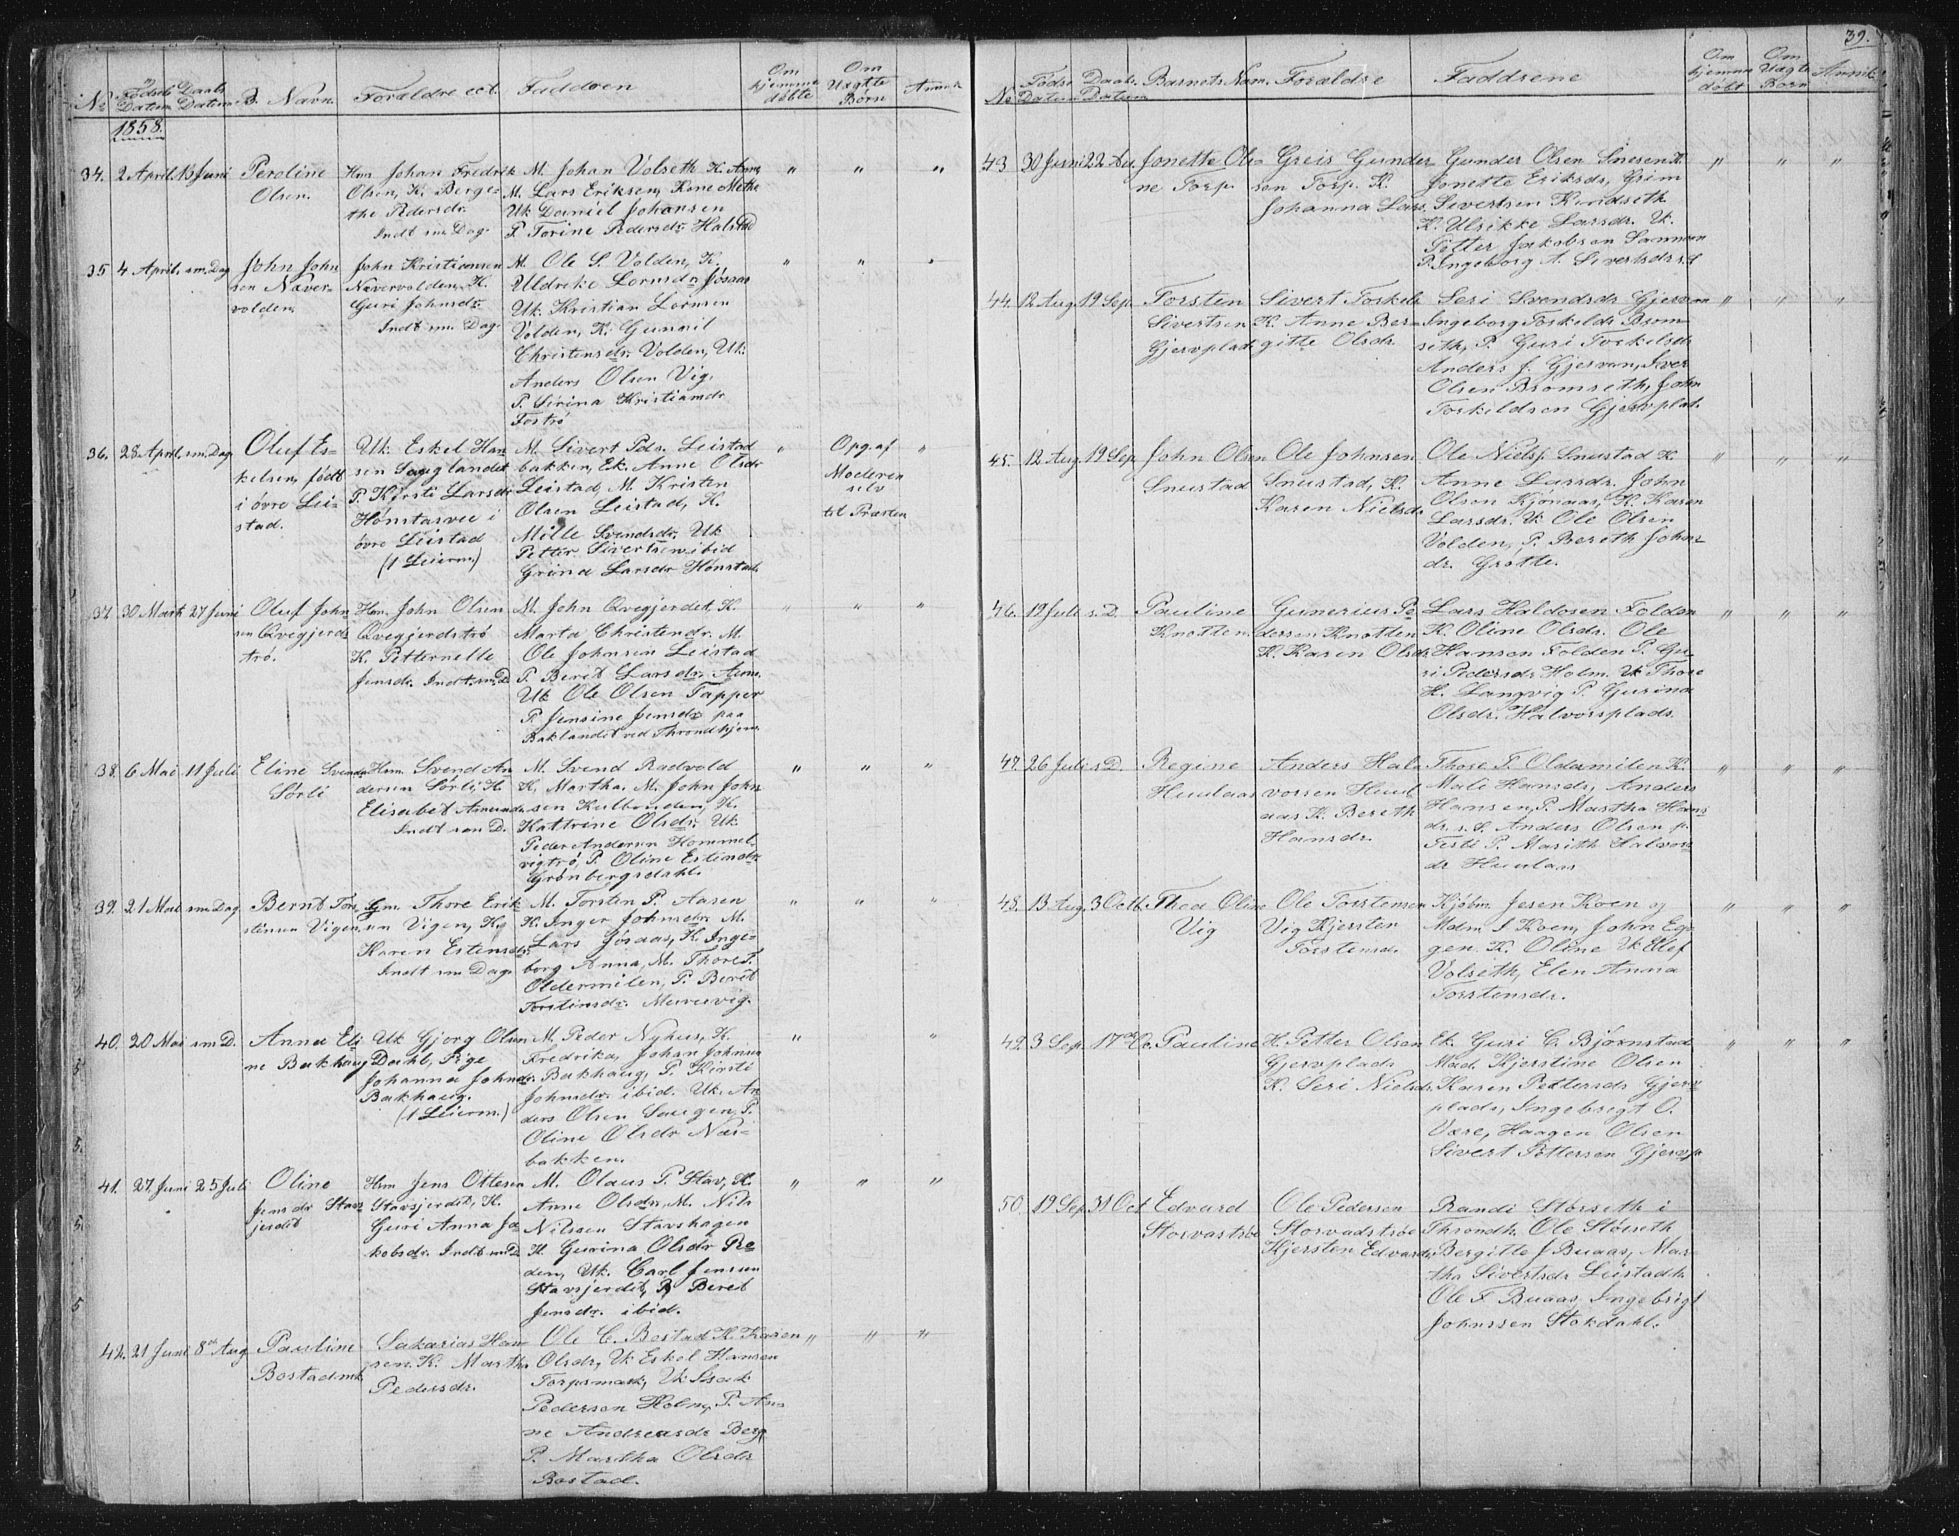 39.
No
Fødsels Daabs
Datum Datum
B. Navn.
Forældre etc.
Faddere
Om
hjemme
døbte
Om
Uægte
Børn
Anmk
1858.
34. 2 April 13 Juni
Perdine
Olsen.
Hm. Johan Fredrik
Olsen, K. Berge-
the Pedersdr.
Indt sm. Dag.
M. Johan Volseth K. Anne
M. Lars Eriksen, Kone Methe
Uk. Daniel Johansen
P. Torine Pedersdr. Halstad
" " "
35 4 April. sm. Dag
John John
sen Næver-
volden
John Kristiansen
Nævervolden, K.
Guri Johnsdr.
Indt sm. Dag.
M. Ole S. Volden, K.
Uldrike Lornsdr. Jøsaas
Uk. Kristian Lornsen
Volden, K. Gunnil
Christensdr. Volden, Uk.
Anders Olsen Vig.
P. Sirina Kristiansdr
Fostrø
" " "
36. 28 April. sm. Dag.
Oluf Es-
kelsen, født
i øvre Lei-
stad.
Uk. Eskel Han
sen Sauglandet
P. Kjersti Larsdr
Hønstasvee i
øvre Leistad
(1 Leierm.)
M. Sivert Pdr. Leistad
bakken, Ek. Anne Olsdr
Leistad, M. Kristen
Olsen Leistad, K.
Mille Svendsdr. Uk
Petter Sivertsen ibid
Grina Larsdr Hønstad.
"
Opg. af
Moderen
selv
til Præsten
"
37. 30 Marts 27 Juni
Oluf John
sen Qvegjerds
trø.
Hm. John Olsen
Qvegjerdstrø
K. Petternelle
Jensdr. Indt. sm. D.
M. John Qvegjerdet, K.
Marta Christendr. M.
Ole Johnsen Leistad
P. Berit Larsdr.
Uk Ole Olsen Tapper
P. Jensine Jensdr paa
Baklandet ved Throndhjem.
" " "
38. 6 Mai 11 Juli
Eline Svends
Sørli
Hm. Svend An
dersen Sørli, K.
Elisabet Amunds
Indt sm D.
M. Svend Radvold
K. Martha. M. John John
sen K.
Kattrine Olsdr. Uk
Peder Andersen Hommel
vigtrø, P. Oline Estensdr
Grønbergsdahl.
" " "
39. 21 Mai sm. Dag
Bernt Tor-
stensen Vigen.
Gm. Thore Erik
sen Vigen, K.
Karen Estensdr.
Indt sm Dag.
M. Torsten P. Aasen
K. Inger Johnsdr. M.
Lars Jøsaas, K. Inge-
borg Anna, M. Thore T.
Oldermilen, P. Berit
Torstensdr. Muruvig.
" " "
40. 20 Mai sm D.
Anna Eli
ne Bakhaug
Uk Gjorg Olsen
Dahl, Pige
Johanna Johns
Bakhaug.
(1 Leierm.)
M. Peder Nyhus, K.
Fredrika, Johan Johnsen
Bakhaug, P. Kirsti
Johnsdr. ibid. Uk. An
ders Olsen Saugen, P.
Oline Olsdr Nær-
bakken.
" "
41. 27. Juni 25 Juli
Oline
Jensdr Stavs
jerdet
Hm Jens Ottesen
Stavsjerdet, K.
Guri Anna Ja
kobsdr. Indt sm D
M. Olaus P. Stav, K.
Anne Olsdr, M. Nils
Nilsen Stavshagen
K. Gurina Olsdr Re
den, Uk. Carl Jensen
Stavsjerdet, P. Beret
Jensdr. ibid.
" " "
42. 21 Juni 8de Aug
Pauline
Bostadmk
Sakarias Han
sen, K. Martha
Pedersdr.
Ole C. Bostad K. Karen
Olsdr, Uk Eskel Hansen
Torpsmark, Uk Isak
Pedersen Holm, P. An
ne Andreasdr Berg
P. Martha Olsdr
Bostad.
" " "
No
Fødse Daabs
Datum Datum
Barnets Navn.
Forældre
Faddrene
Om
hjemme
døbt
Om
Uægte
Børn
Anmk
43 30 Juni 22 Aug
Jonette Ole-
ne Torp.
Greis Gunder
sen Torp. K.
Johanna Lars.
Gunder Olsen K.
Jonette Eriksdr, Grim
Sivertsen
K. Ulrikke Larsdr. Uk.
Petter Jakobsen
P. Ingeborg A. Sivertsdr
" " "
44. 12 Aug. 19 Sep.
Torsten
Sivertsen
Gjervplad
Sivert Torkels
K. Anne Ber-
gitte Olsdr.
Seri Svendsdr. Gjervan
Ingeborg Torkildr Brøm-
seth, P. Guri Torkelsdr
Anders J. Gjervan, Iver
Olsen Brømseth, John
Torkildsen Gjervplad.
" " "
45. 12 Aug. 19 Sep
John Olsen
Snustad
Ole Johnsen
Snustad, K.
Karen Nielsdr
Ole Niels. Snustad K
Anne Larsdr. John
Olsen Kjønaas, K. Karen
Larsdr. Uk Ole Olsen
Volden, P. Bereth Johns-
dr. Grøtte.
" " "
46. 19 Juli s. D.
Pauline
Knotten
Gunerius Pe
dersen Knotten
K. Karen Olsdr
Lars Haldosen Folden
K. Oline Olsdr. Ole
Hansen Folden P. Gu
ri Pedersdr Holm. Uk Thore
H. Langvig P. Gurina
Olsdr. Halvorsplads.
" " "
47. 26 Juli s. D.
Regine
Huulaas
Anders Hal
vorsen Huul
aas K. Bereth
Hansdr.
Thore T. Oldermilen K.
Mali Hansdr, Anders
Hansen, P. Martha Hans
dr. s. S. Anders Olsen p.
P. Marith Halvors
dr Huulaas
" " "
48. 13 Aug. 3 Octb.
Thea Oline
Vig
Ole Torstensen
Vig Kjersten
Torstensd.
Kjøbm. Jesen Koen og
Mdm. S Koen, John Eg-
gen. K. Oline Uk Elef
Volseth, Elen Anna
Torstensdr.
" " "
49. 3 Sep. 17de Oc.
Pauline
H. Petter Olsen
Gjervplads
K. Seri Nielsdr.
Ek. Guri C. Bjørnstad
Mad. Kjerstine Olsen
Karen Pettersdr Gjerv-
plads, Ingebrigt O.
Være, Haagen Olsen
Sivert Pettersen Gjervp
" " "
50. 19 Sep. 31 Oct.
Edvard
Storvastrøe
Ole Pedersen
Storvadstrøe
Kjersten Edvards
Randi Størseth i
Throndh. Ole Størseth
Bergitte J Buaas, Mar-
tha Sivertsdr Leistadh
Ole F Buaas, Ingebrigt
Johnssen Stokdahl.